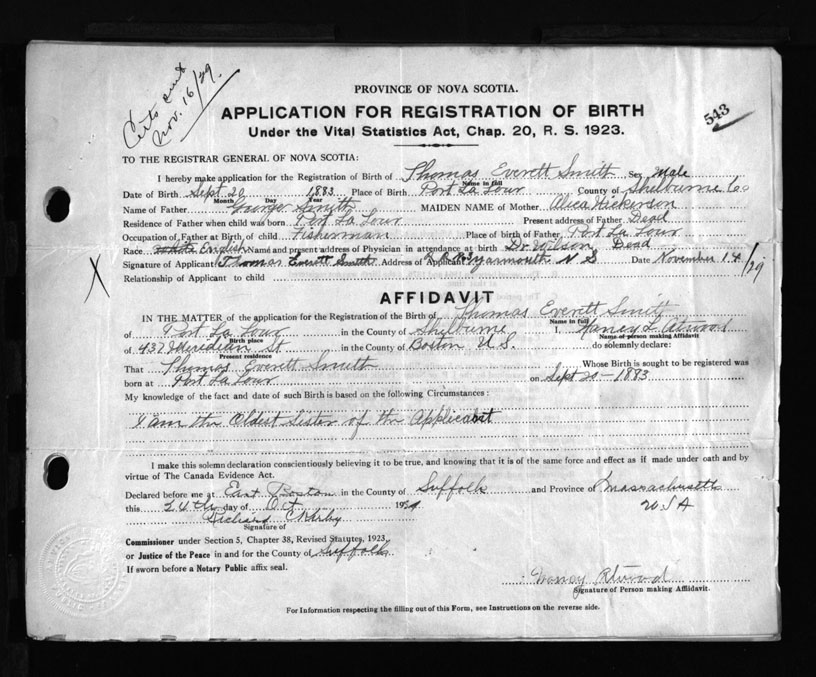 Certs sent
Nov. 16/29.
543
PROVINCE OF NOVA SCOTIA.
APPLICATION FOR REGISTRATION OF BIRTH
Under the Vital Statistics Act, Chap. 20, R. S. 1923.
TO THE REGISTRAR GENERAL OF NOVA SCOTIA:
I hereby make application for the Registration of Birth of Thomas Everett Smith Sex Male
Name in full
Date of Birth Sept 20 1883 Place of Birth Port La Tour County of Shelburne Co
Month Day Year
Name of Father George Smith MAIDEN NAME of Mother Alica Nickerson
Residence of Father when child was born Port La Tour Present address of Father Dead
Occupation of Father at Birth of child Fisherman Place of birth of Father Port La Tour
Race White English Name and present address of Physician in attendance at birth Dr Wilson Dead
Signature of Applicant Thomas Everett Smith Address of Applicant Yarmouth N S Date November 14/29
Relationship of Applicant to child
AFFIDAVIT
IN THE MATTER of the application for the Registration of the Birth of Thomas Everett Smith
Name in full
of Port La Tour in the County of Shelburne I, Nancy L Atwood
Birth place Name of person making Affidavit
of 437 Meridean St in the County of Boston U.S. do solemnly declare:
Present residence
That Thomas Everett Smith Whose Birth is sought to be registered was
born at Port La Tour on Sept 20-1883
My knowledge of the fact and date of such Birth is based on the following Circumstances:
I am the Oldest Sister of the Applicant
I make this solemn declaration conscientiously believing it to be true, and knowing that it is of the same force and effect as if made under oath and by
virtue of The Canada Evidence Act.
Declared before me at East Boston in the County of Suffolk and Province of Massachusetts
this 24th day of Oct 1929. USA
Richard C Kirby
Signature of
Commissioner under Section 5, Chapter 38, Revised Statutes, 1923,
or Justice of the Peace in and for the County of Suffolk
If sworn before a Notary Public affix seal.
Nancy Atwood
Signature of Person making Affidavit.
For Information respecting the filling out of this Form, see Instructions on the reverse side.